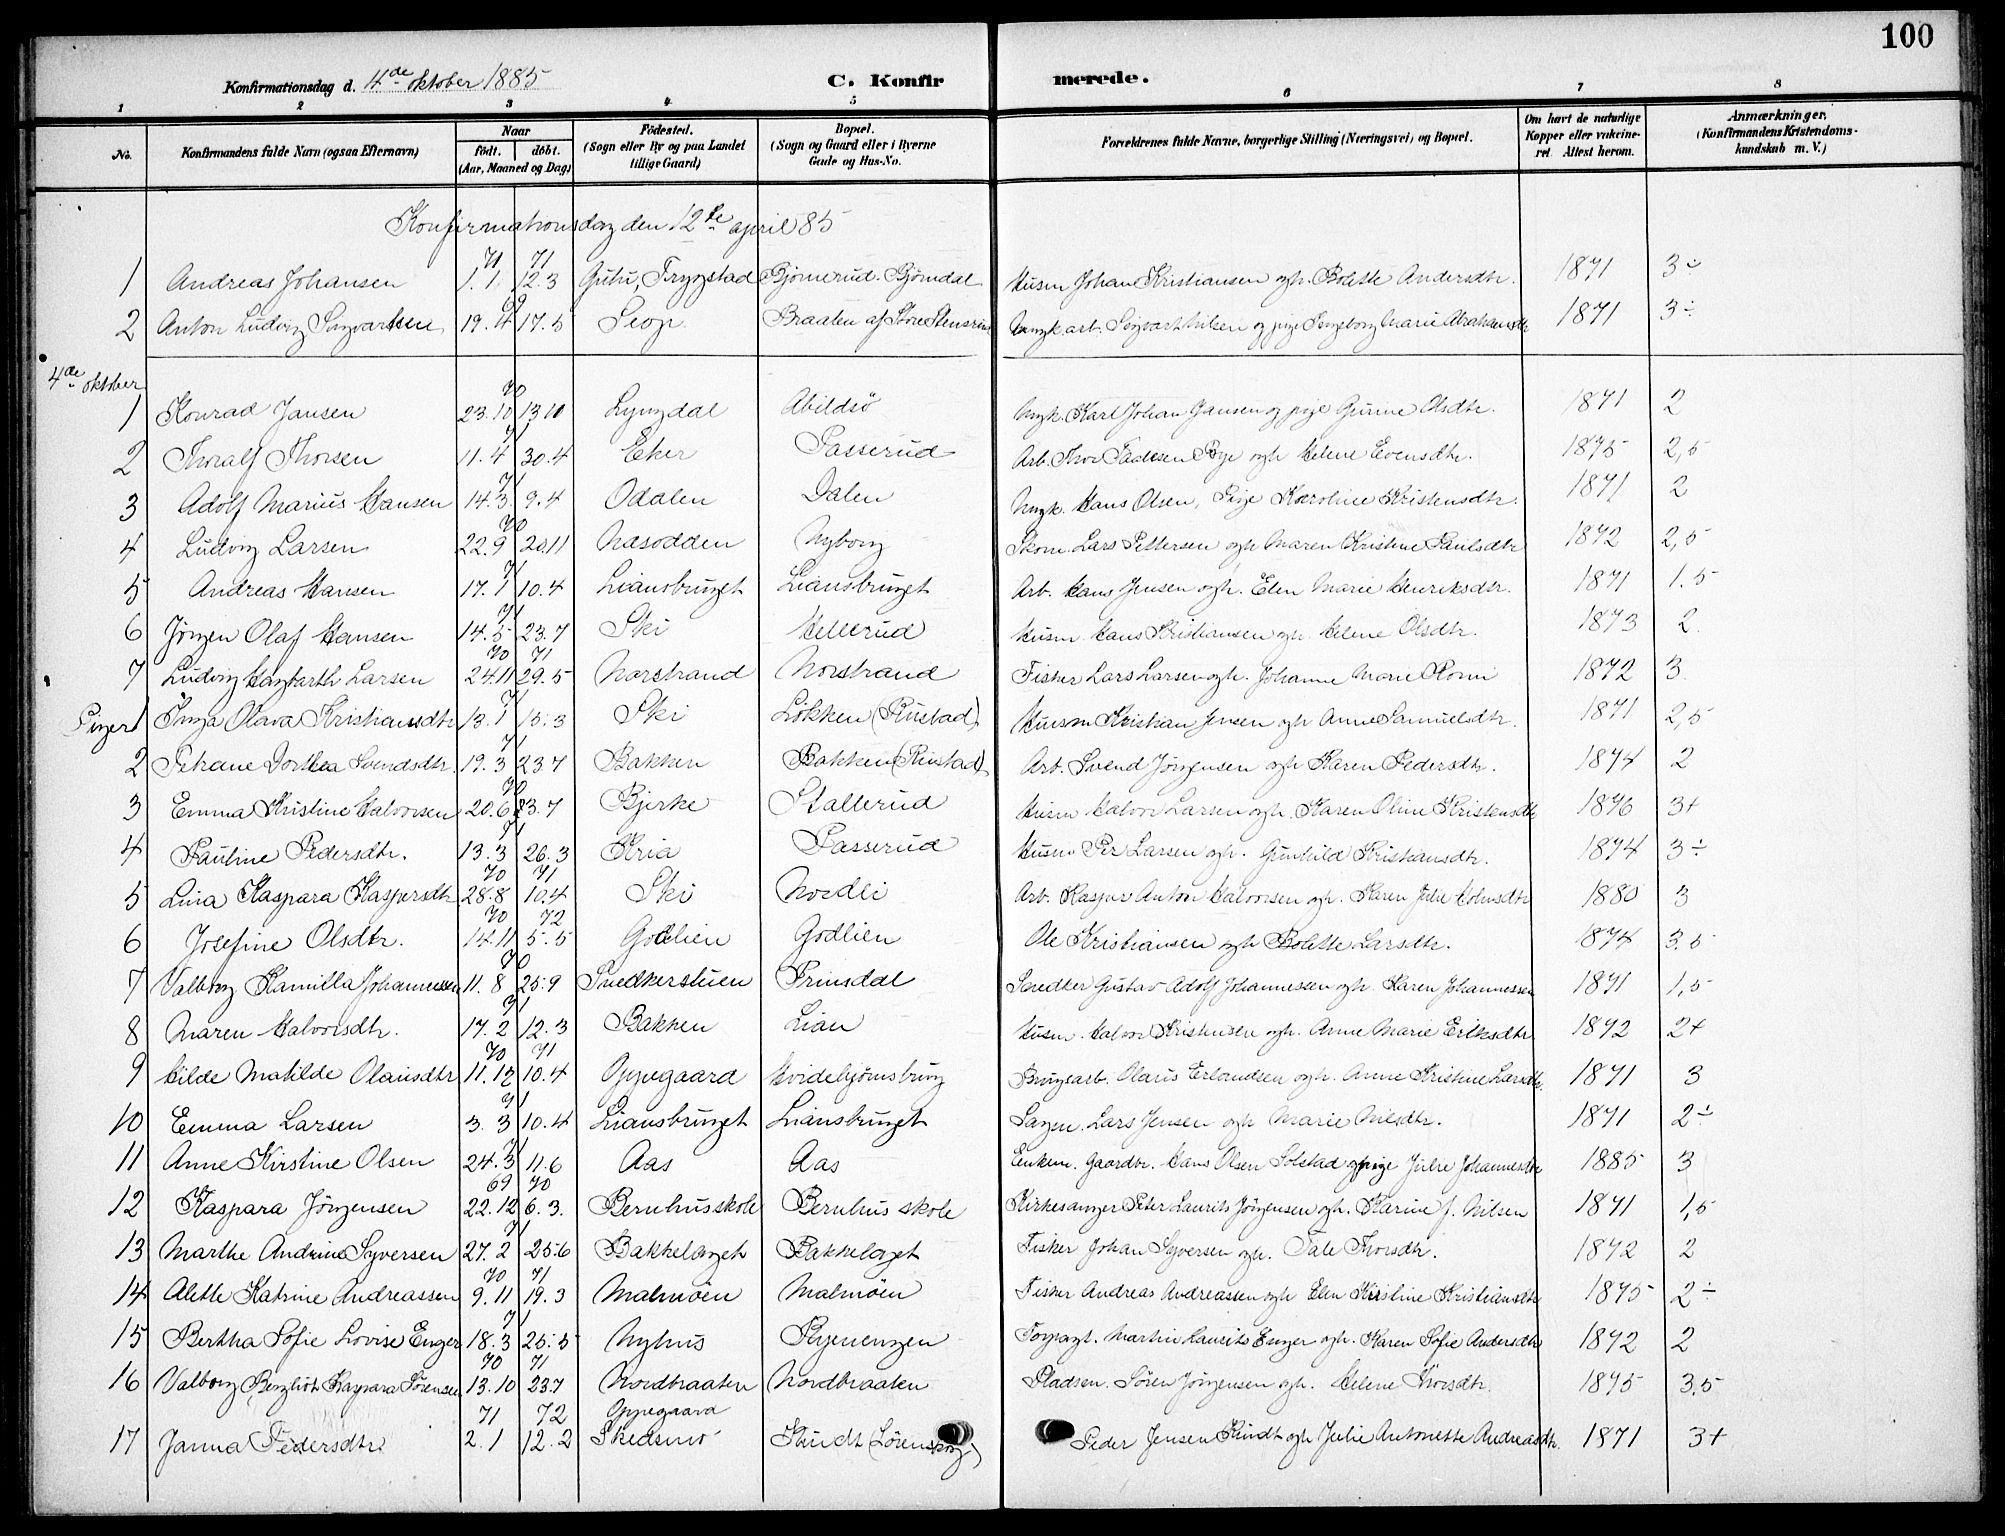 100
Konfirmationsdag d. 4de oktober 1885 C. Konfirmerede.
1 2 3 4 5 6 7 8
No. Konfirmandens fulde Navn (ogsaa Efternavn) Naar født. døbt. (Aar, Maaned og Dag) Fødested. (Sogn eller By og paa Landet tillige Gaard) Bopæl. (Sogn og Gaard eller i Byerne Gade og Hus-No. Forældrenes fulde Navne, borgerlige Stilling (Næringsvei) og Bopæl. Om havt de naturlige Kopper eller vakcineret. Attest herom. Anmærkninger. (Konfirmandens Kristendomskundskab m. V.)
Konfirmationsdag den 12te april 85
71 71
1 Andreas Johansen 1.1 12.3 Gutu, Trygstad Bjørnerud. Bjørndal Husm Johan Kristiansen og h. Bolette Andersdtr. 1871 3÷
69
2 Anton Ludvig Sigvartsen 19.4 17.5 Braaten af Store Stensrud Ungk. arb. Sigvart Nilsen og pige Ingeborg Marie Abrahamsdtr 1871 3÷
4de oktober
70
1 Konrad Jansen 23.10 13.10 Lyngdal Abildsø Ungk. Karl Johan Jansen og pige Gurine Olsdtr. 1871 2
71
2 Thoralf Thorsen 11.4 30.4 Eker Passerud Arb. Thor Paulsen Bye og h Helene Evensdtr. 1875 2,5
71
3 Adolf Marius Hansen 14.3. 9.4 Odalen Dalen Ungk. Hans Olsen, Pige Karoline Kristensdtr. 1871 2
70
4 Ludvig Larsen 22.9 20.11 Næsodden Nyborg Skom. Lars Pettersen og h Maren Kristine Paulsdtr 1872 2,5
71
5 Andreas Hansen 17.1 10.4 Liansbruget Liansbruget Arb. Hans Jensen og h. Elen Marie Henriksdtr. 1871 1.5
71
6 Jørgen Olaf Hansen 14.5 23.7 Ski Hellerud Husm. Hans Kristiansen og h. Helene Olsdtr. 1873 2
70 71
7 Ludvig Hagbarth Larsen 24.11 29.5 Norstrand Norstrand Fisker Lars Larsen og h. Johanne Marie 1872 3
71
Piger 1 Inga Olava Kristiansdtr 13.1 15.3 Ski Løkken (Rustad) Husm Kristian Jensen og h Anne Samuelsdtr. 1871 2,5
71
2 Petrane Dorthea Svendsdtr. 19.3 23.7 Bakken Bakken (Rustad) Arb. Svend Jørgensen og h Karen Pedersdtr. 1874 2
70
3 Emma Kristine Halvorsen 20.6 23.7 Bjerke Stallerud Husm Halvor Larsen og h. Karen Oline Kristensdtr 1876 3+
71
4 Pauline Pedersdtr. 13.3 26.3 Kria Passerud Husm. Per Larsen og h. Gunhild Kristiansdtr. 1874 3÷
70 71
5 Lina Kaspara Kaspersdtr 28.8 10.4 Ski Nordli Arb. Kasper Anton Halvorsen og h. Karen Julie Holmsdtr 1880 3
70 72
6 Josefine Olsdtr. 14.11 5.5 Godlien Godlien Ole Kristiansen og h Bolette Larsdtr. 1874 3.5
70
7 Valborg Kamilla Johannessen 11.8 25.9 Snedkerstuen Prinsdal Snedker Gustav Adolf Johannessen og h. Karen Johannessen 1871 1,5
71
8 Maren Halvorsdtr. 17.2 12.3 Bakken Lian Husm. Halvor Kristensen og h. Anne Marie Eriksdtr 1872 2+
70 71
9 Hilde Matilde Olausdtr 11.12 10.4 Oppegaard Hvidebjørnsbrug Brugsarb. Olaus Erlandsen og h. Anne Kristine Larsdtr. 1871 3
71
10 Emma Larsen 3.3 10.4 Liansbruget Liansbruget Sagm. Lars Jensen og h Marie Nilsdtr. 1871 2÷
71
11 Anne Kirstine Olsen 24.3 11.6 Aas Aas Enkem. Gaardbr. Hans Olsen Solstad og pige Julie Johannesdtr 1885 3
69 70
12 Kaspara Jørgensen 22.12 6.3. Bernhusskole Bernhus skole Kirkesanger Peter Laurits Jørgensen og h. Karine J. Nilsen 1871 1,5
71
13 Marthe Andrine Syversen 27.2 25.6 Bakkelaget Bakkelaget Fisker Johan Syversen og h. Tale Thorsdtr. 1872 2
70 71
14 Alette Katrine Andreassen 9.11 19.3 Malmøen Malmøen Fisker Andreas Andreassen og h Elen Kristine Kristiansdtr 1875 2÷
71
15 Bertha Sofie Lovise Enger 18.3 25.5 Nyhus Ryenengen Martin Laurits Enger og h. Karen Sofie Andersdtr 1872 2
70 71
16 Valborg Bergliot Kaspara Sørensen 13.10 23.7 Nordbraaten Nordbraaten Pladsem. Søren Jørgensen og h. Helene Thorsdtr. 1875 3,5
71 72 Oppegaard
17 Janna Pedersdtr. 2.1 12.2 Skedsmo Kindt (Lørenskog) Peder Jensen Kindt og h Julie Antonette Andreasdtr. 1871 3+